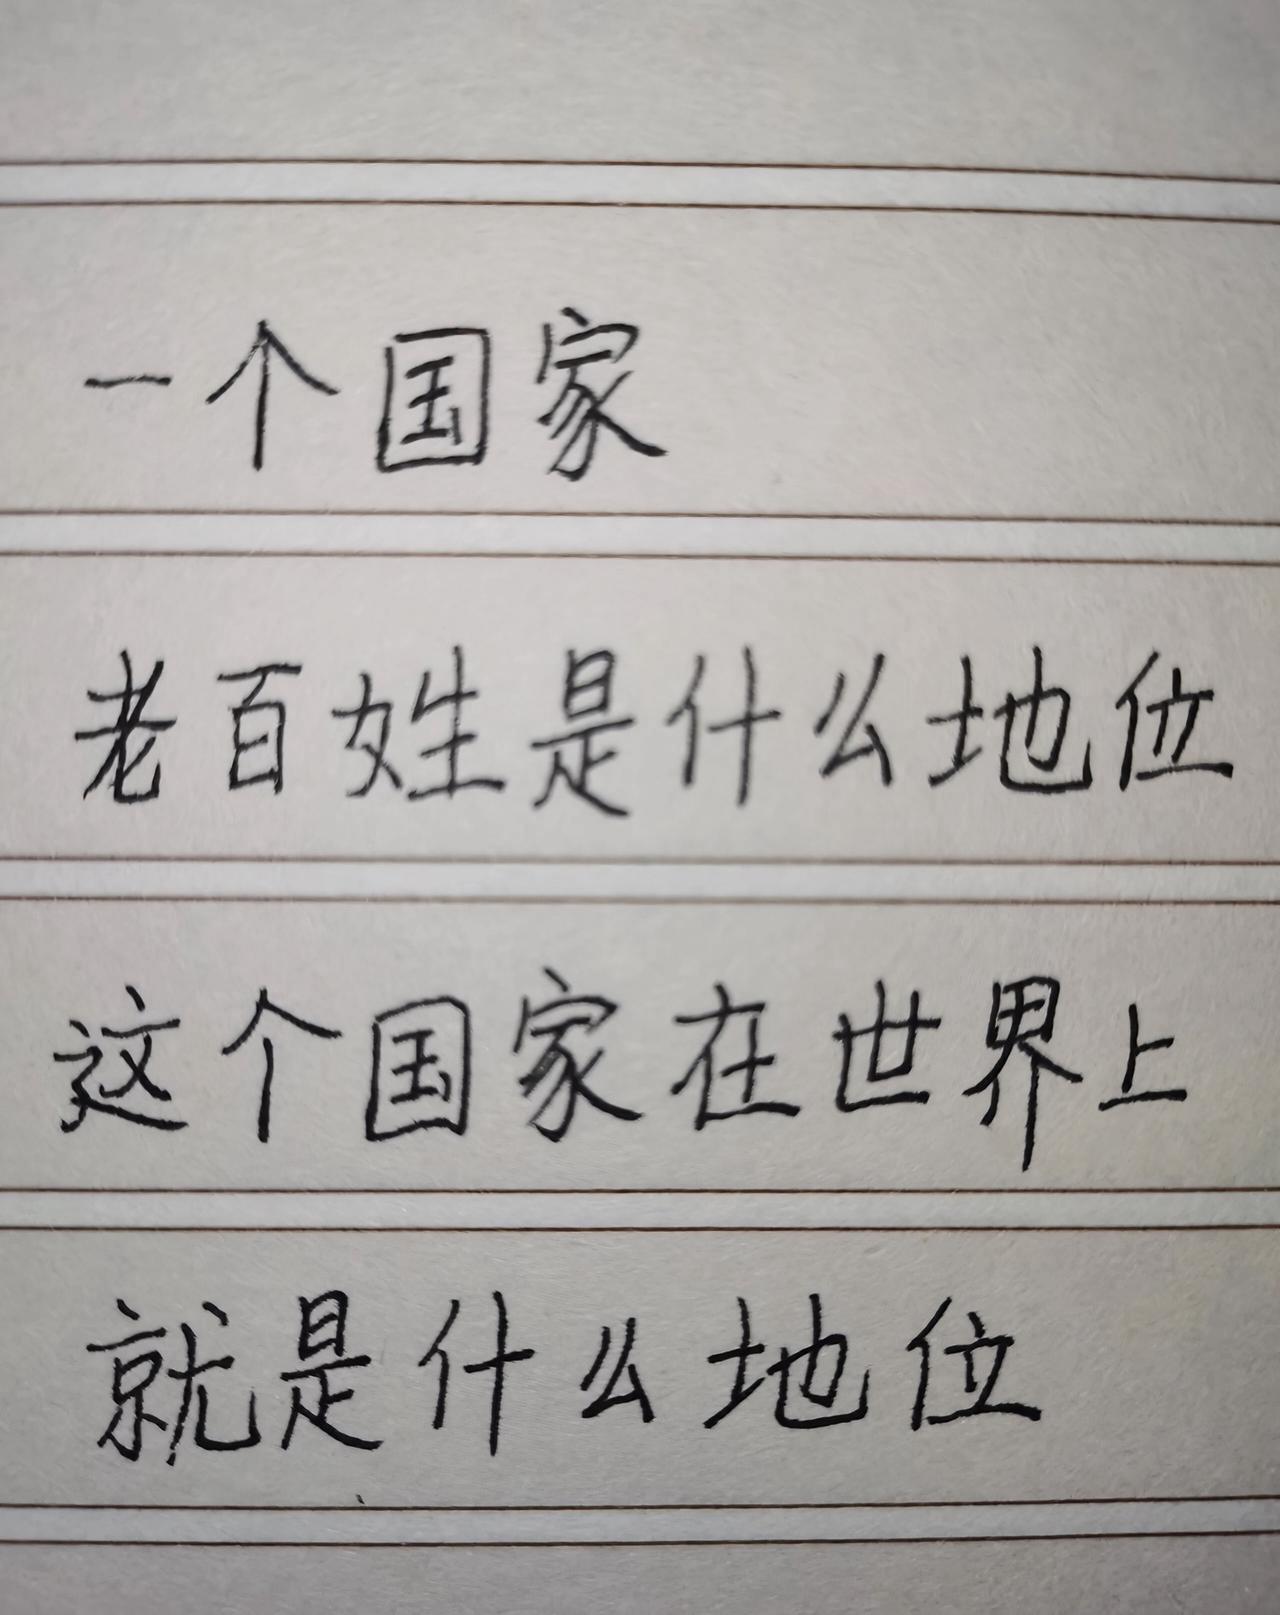 一个国家
老百姓是什么地位
这个国家在世界上
就是什么地位